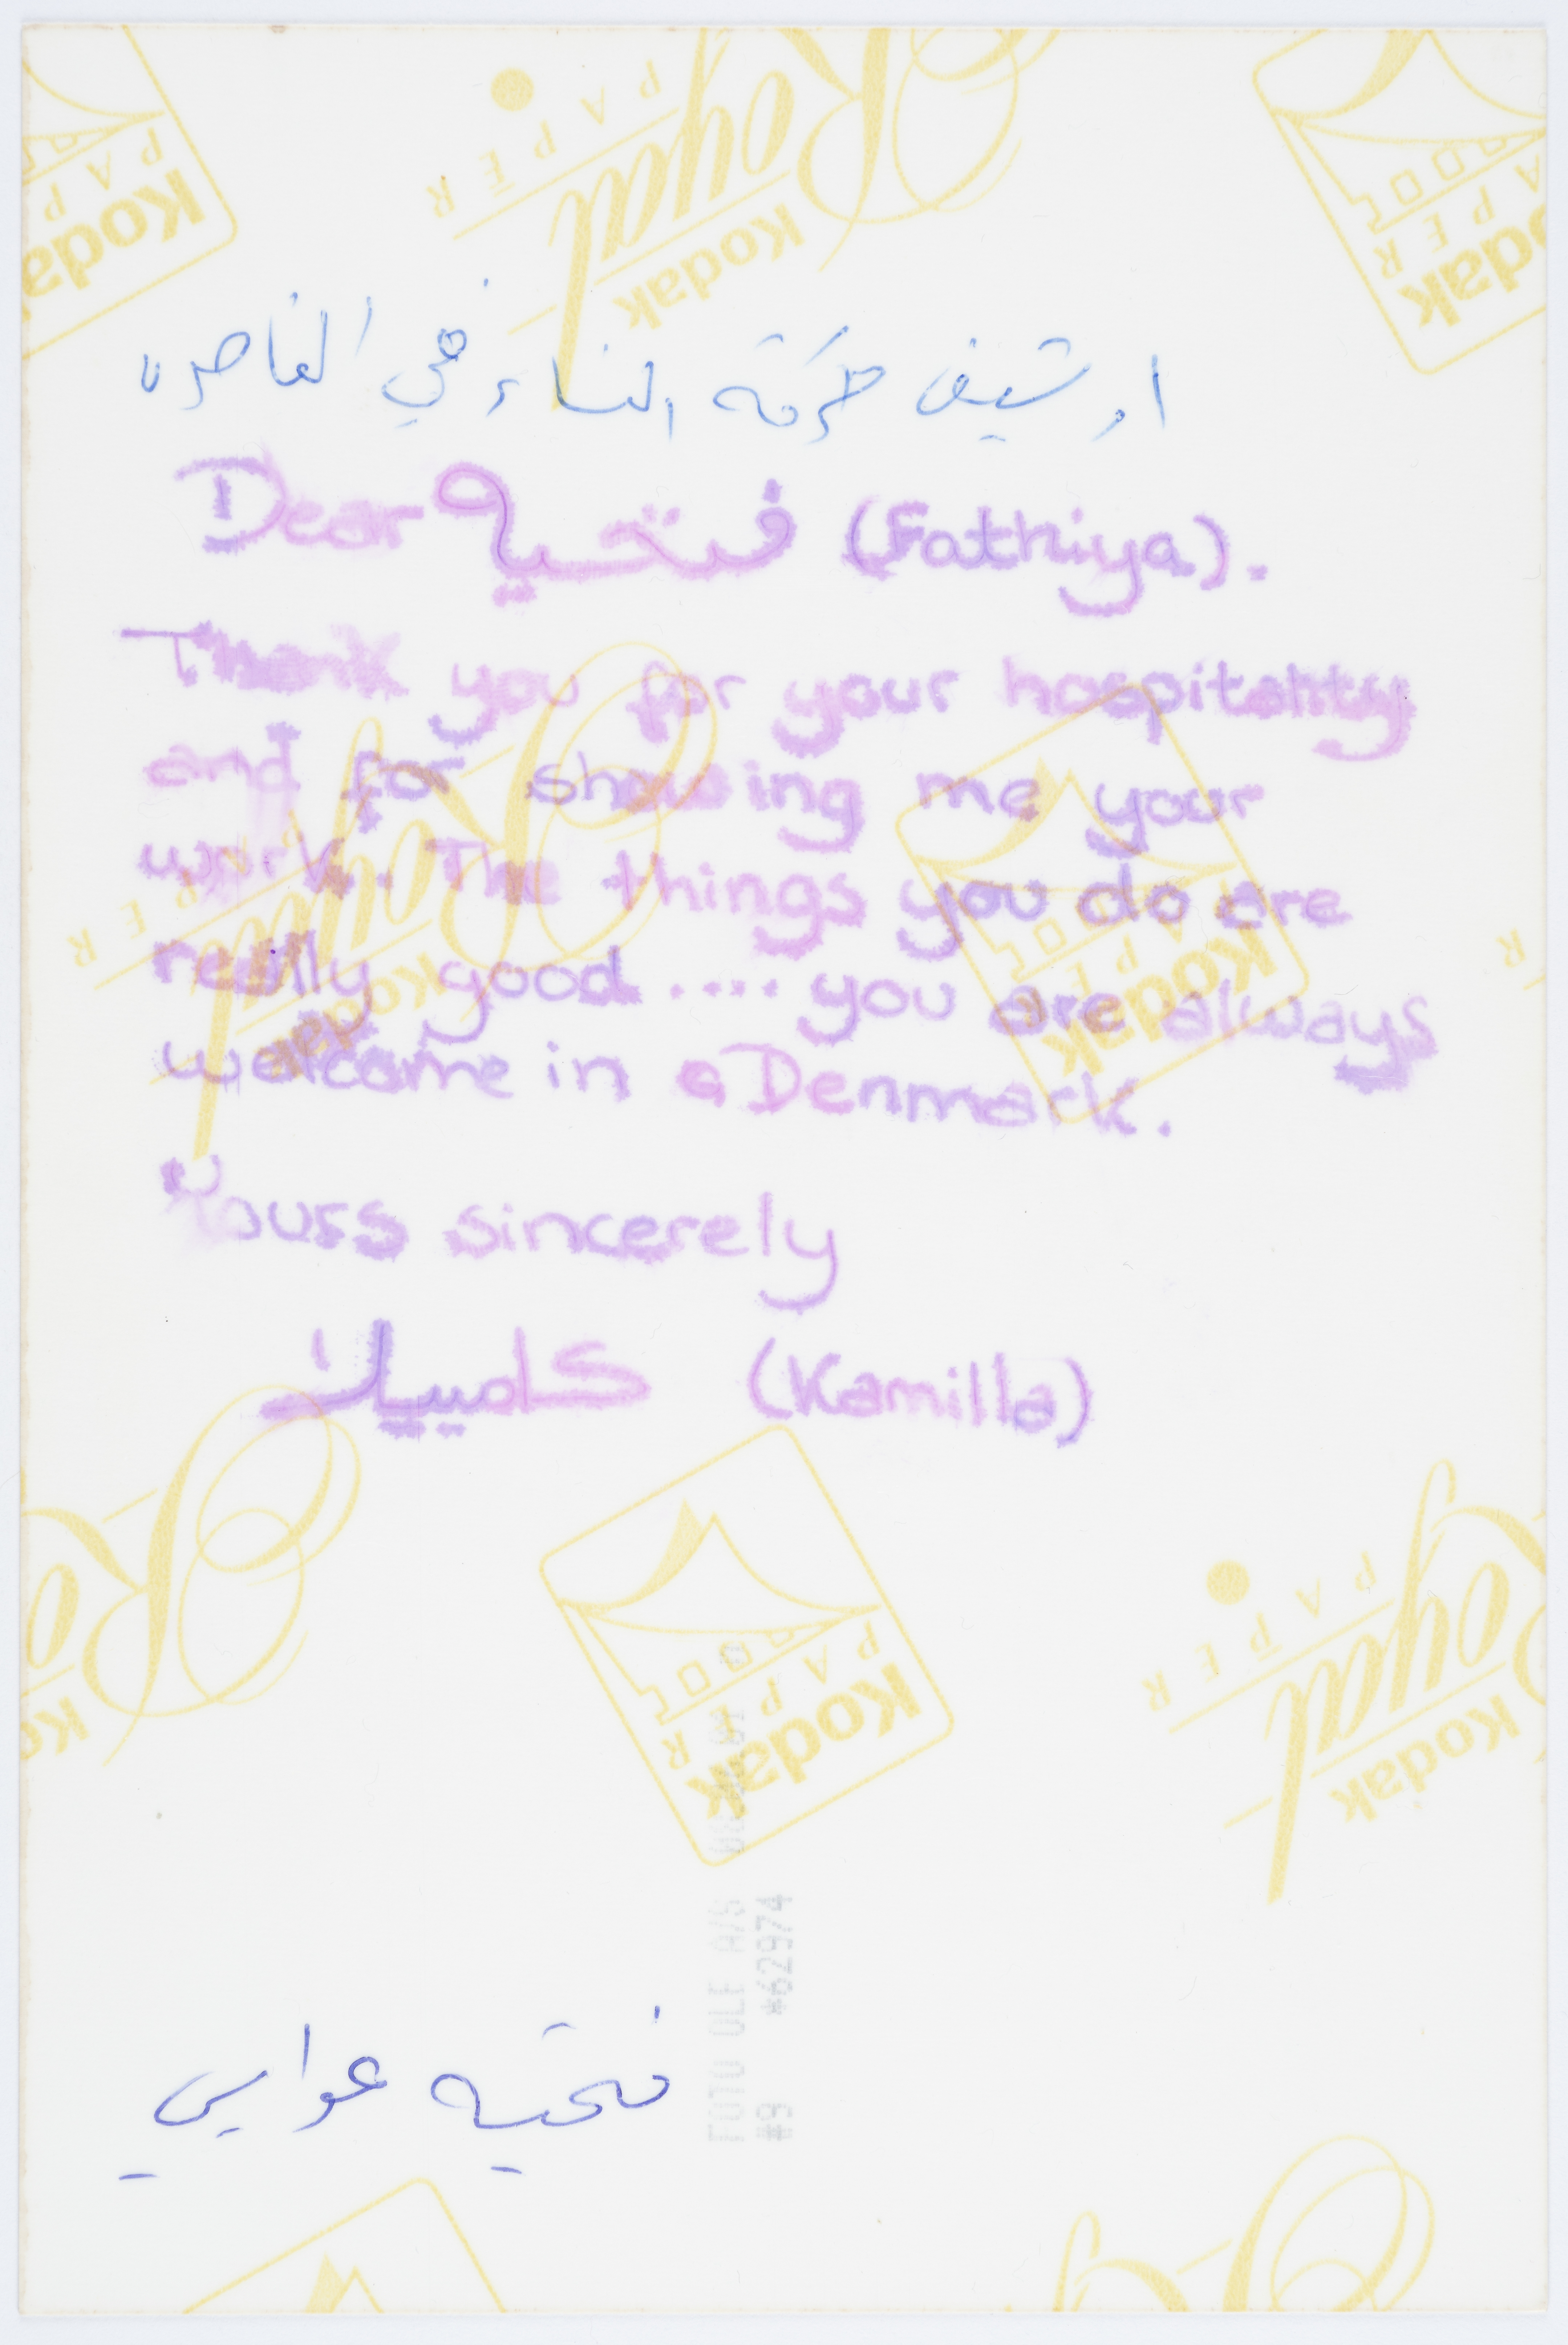 ارشيف حركة النساء في الناصره
Dear فتحيه (Fathiya).
Thank you for your hospitality
and for showing me your
work. The things you do are
really good .... you are always
welcome in a Denmark.
Yours sincerely
كاميلا (Kamilla)
فتحيه عوايسي
FOTO OLE A/S
#9 *62974
Kodak
Royal
PAPER
Kodak
PAPER